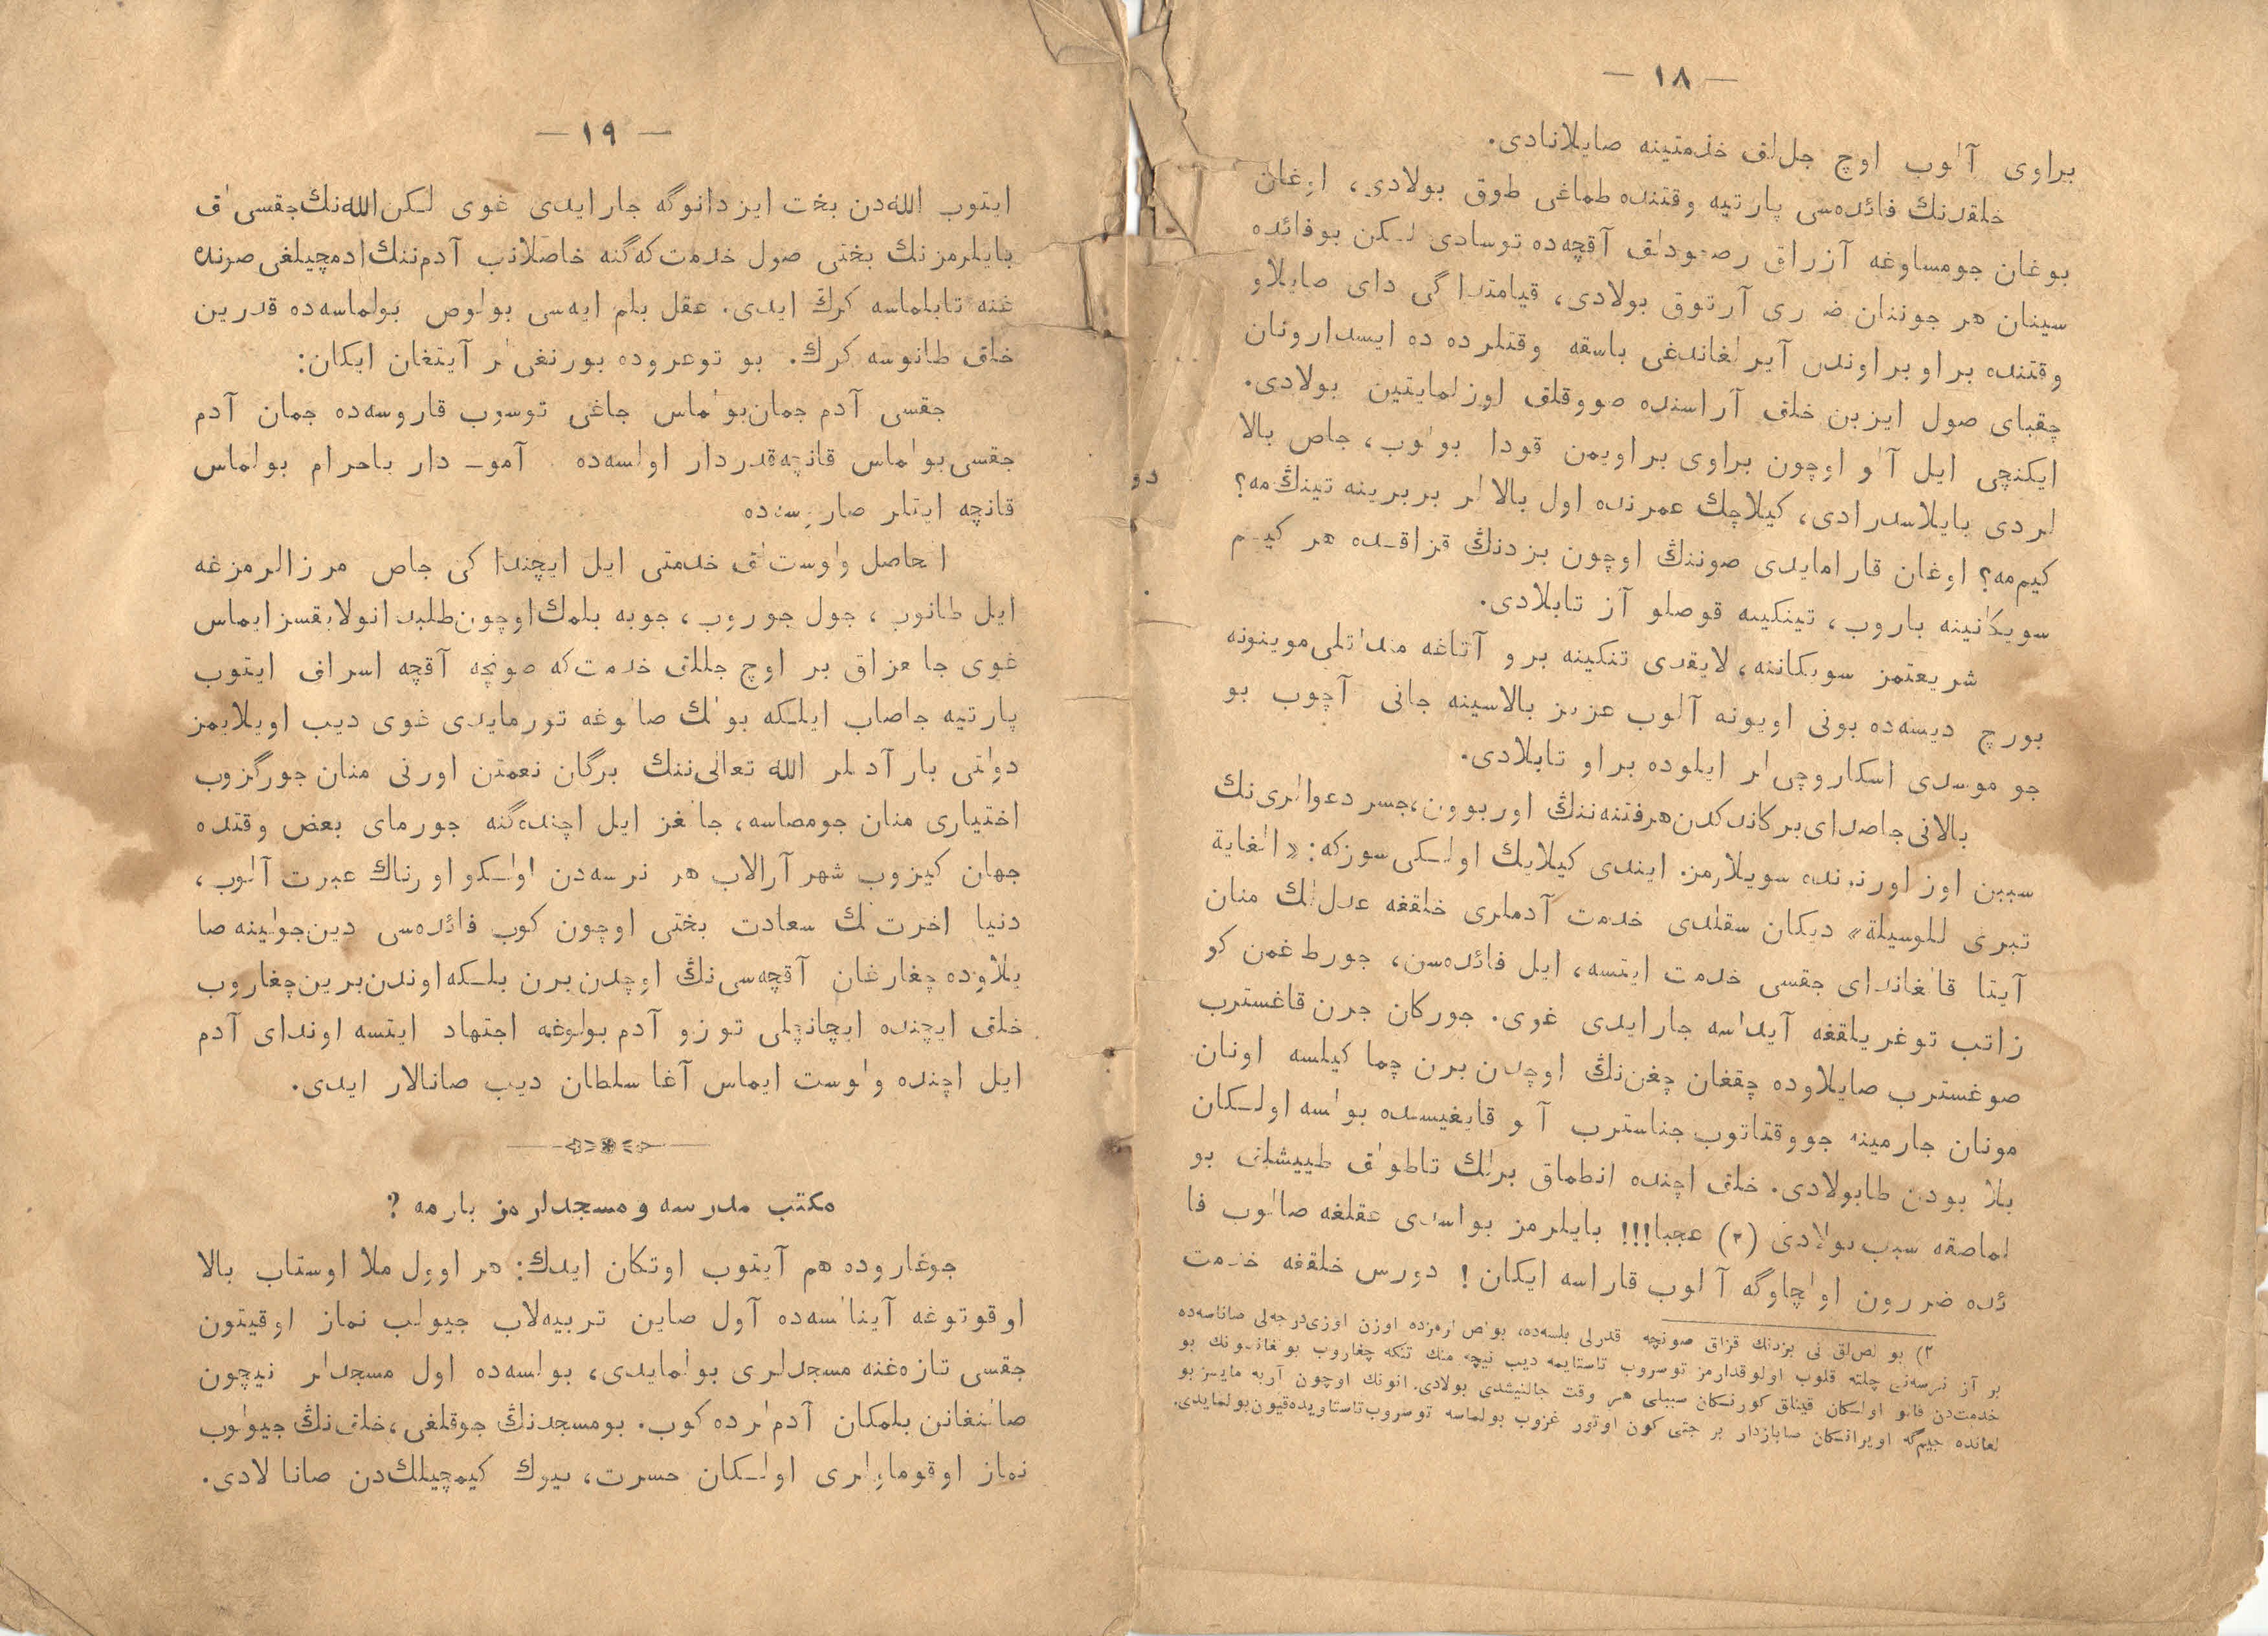 — ١٨ —
براوی آلوب اوچ جللق خذمتینه صایلانادی.
خلقدنڭ فائده‌سی پارتیه وقتنده طماغی طوق بولادی، اوغان
بوغان جومساوغه آزراق رصودلق آقچه‌ده توسادی لیکن بوفائده
سینان هر جوننان ضرری آرتوق بولادی، قیامتدا گی دای صایلاو
وقتنده براو براوندن آیرلغاندغی باسقه وقتلرده ده ایسدارونان
چقبای صول ایزبن خلق آراسنده صووقلق اوزلمایتین بولادی.
ایکنچی ایل آلو اوچون براوی براویمن قودا بولوب، جاص بالا
لردی بایلاسدرادی، کیلاچك عمرنده اول بالالر بربرینه تینڭ مه؟
کیم‌مه؟ اوغان قارامایدی صوننڭ اوچون بزدنڭ قزاقده هر کیم
سویکانینه باروب، تینکینه قوصلو آز تابلادی.
شریعتمز سویکاننه، لایقدی تنکینه برو آتاغه مندتلی موینونه
بورچ دیسه‌ده بونی اویونه آلوب عزیز بالاسینه جانی آچوب بو
جو موسدی اسکاروچی لر ایلوده براو تابلادی.
بالانی جاصدای برکاندکدن هرفتنه‌ننڭ اوربوون، جسر دعوالری نك
سببن اوز اورنونده سویلارمز. ایندی کیلایك اولکی سوزکه: «الغایة
تبری للوسیلة» دیکان سقلدی خدمت آدملری خلقغه عدل‌لك منان
آیتا قالغاندای جقسی خدمت ایتسه، ایل فائده‌سن، جورط غمن کو
زاتب توغریلقغه آیداسه جارایدی غوی. جورکان جرن قاغسترب
صوغسترب صایلاوده چقغان چغن‌نڭ اوچدن برن چما کیلسه اونان
مونان جارمینه جووقتاتوب جناسترب آلو قایغیسده بولسه اولکان
بلا بودن طابولادی. خلق اچنده انطماق برلك تاطولق طییشلی بو
لماصقه سبب بولادی (٢) عجبا!!! بایلرمز بواسدی عقلغه صالوب فا
ئده ضررون اولچاوگه آلوب قاراسه ایکان! دورس خلقغه خدمت
٢) بو لص‌لق نی بزدنك قزاق صونچه قدرلی بلسه‌ده، بولص لرمزده اوزن اوزی‌درجه‌لی صاناسه‌ده
بر آز نرسه‌نی چلته قلوب اولوقدارمز توسروب تاستایمه دیب نیچه منك تنکه چغاروب بولغانونك بو
خدمت‌دن قالو اولکان قینلق کورنسکان سببلی هر وقت جالنیشدی بولادی. انونك اوچون آربه مایسزبو
لغانده جیم‌گه اویرانسکان صابازدار بر جتی کون اوتور غزوب بولماسه توسروب تاستاویده قیون بولمایدی.
— ١٩ —
ایتوب الله‌دن بخت ایزدانوگه جارایدی غوی لیکن الله‌نك جقسی لق
بایلرمزنك بختی صول خدمت که گنه خاصلانب آدم‌ننك ادمچیلغی صونده
غنه تابلماسه کرك ایدی. عقل بلم ایه‌سی بولوص بولماسه‌ده قدرین
خلق طانوسه کرك. بو توغروده بورنغی لر آیتغان ایکان:
جقسی آدم جمان‌بولماس جاغی توسوب قاروسه‌ده جمان آدم
جقسی‌بولماس قانچه‌قدردار اولسه‌ده آمو- دار باحرام بولماس
قانچه ایتلر صاریسه‌ده
الحاصل ولوست‌لق خدمتی ایل ایچنداکی جاص مرزالرمزغه
ایل طانوب، جول جوروب، جوبه بلمك اوچون طلبدانولایقسز ایماس
غوی جالعزاق بر اوچ جللق خدمت که صونچه آقچه اسراف ایتوب
پارتیه جاصاب ایلکه بولك صالوغه تورمایدی غوی دیب اویلایمز
دولتی بار آدملر الله تعالی‌ننك برگان نعمتن اورنی منان جورگزوب
اختیاری منان جومصاسه، جالغز ایل اچنده‌گنه جورمای بعض وقتده
جهان کیزوب شهر آرالاب هر نرسه‌دن اولکو اورناك عبرت آلوب،
دنیا اخرت نك سعادت بختی اوچون کوب فائده‌سی دین‌جولینه صا
یلاوده چغارغان آقچه‌سی‌نڭ اوچدن برن بلکه اوندن برین چغاروب
خلق ایچنده ایچانچلی توزو آدم بولوغه اجتهاد ایتسه اوندای آدم
ایل اچنده ولوست ایماس آغا سلطان دیب صانالار ایدی.
مکتب مدرسه و مسجدلرمز بارمه ؟
جوغاروده هم آیتوب اوتکان ایدك: هر اوول ملا اوستاب بالا
اوقوتوغه آینالسه‌ده آول صاین تربیه‌لاب جیولب نماز اوقیتون
جقسی تازه‌غنه مسجدلری بولمایدی، بولسه‌ده اول مسجدلر نیچون
صالنغانن بلمکان آدم‌لرده کوب. بومسجدنڭ جوقلغی، خلق‌نڭ جیولوب
نماز اوقوماولری اولکان حسرت، بیوك کیمچیلك‌دن صانالادی.